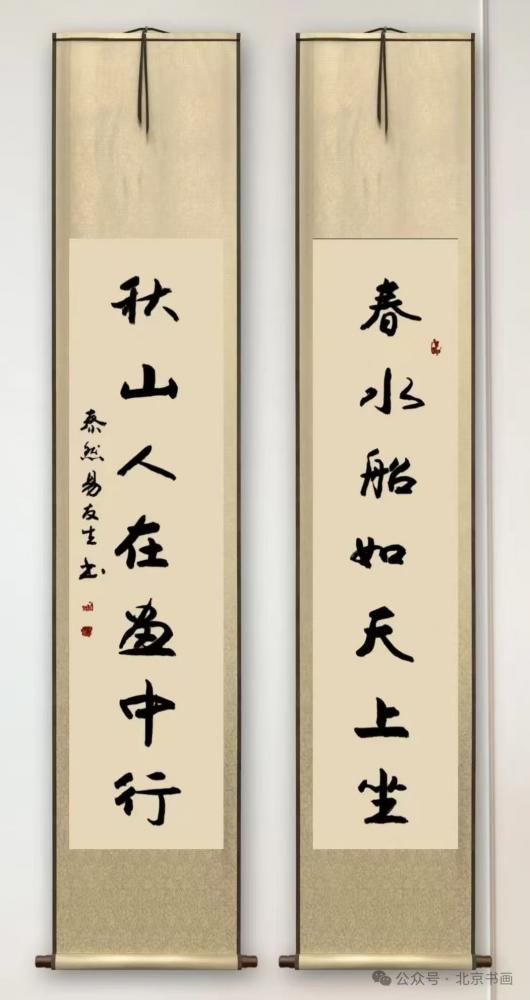 春水船如天上坐
秋山人在画中行
泰然易友生书
公众号·北京书画